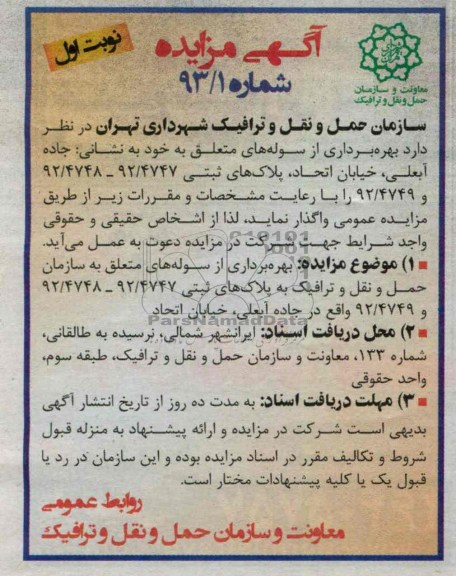 نوبت اول
آگهی مزایده
شماره ۹۳/۱
معاونت و سازمان
حمل و نقل و ترافیک
سازمان حمل و نقل و ترافیک شهرداری تهران در نظر
دارد بهره‌برداری از سوله‌های متعلق به خود به نشانی: جاده
آبعلی، خیابان اتحاد، پلاک‌های ثبتی ۹۲/۴۷۴۷ ـ ۹۲/۴۷۴۸
و ۹۲/۴۷۴۹ را با رعایت مشخصات و مقررات زیر از طریق
مزایده عمومی واگذار نماید، لذا از اشخاص حقیقی و حقوقی
واجد شرایط جهت شرکت در مزایده دعوت به عمل می‌آید.
۱) موضوع مزایده: بهره‌برداری از سوله‌های متعلق به سازمان
حمل و نقل و ترافیک به پلاک‌های ثبتی ۹۲/۴۷۴۷ ـ ۹۲/۴۷۴۸
و ۹۲/۴۷۴۹ واقع در جاده آبعلی، خیابان اتحاد
ParsNamadData
۲) محل دریافت اسناد: ایرانشهر شمالی، نرسیده به طالقانی،
شماره ۱۳۳، معاونت و سازمان حمل و نقل و ترافیک، طبقه سوم،
واحد حقوقی
۳) مهلت دریافت اسناد: به مدت ده روز از تاریخ انتشار آگهی
بدیهی است شرکت در مزایده و ارائه پیشنهاد به منزله قبول
شروط و تکالیف مقرر در اسناد مزایده بوده و این سازمان در رد یا
قبول یک یا کلیه پیشنهادات مختار است.
روابط عمومی
معاونت و سازمان حمل و نقل و ترافیک